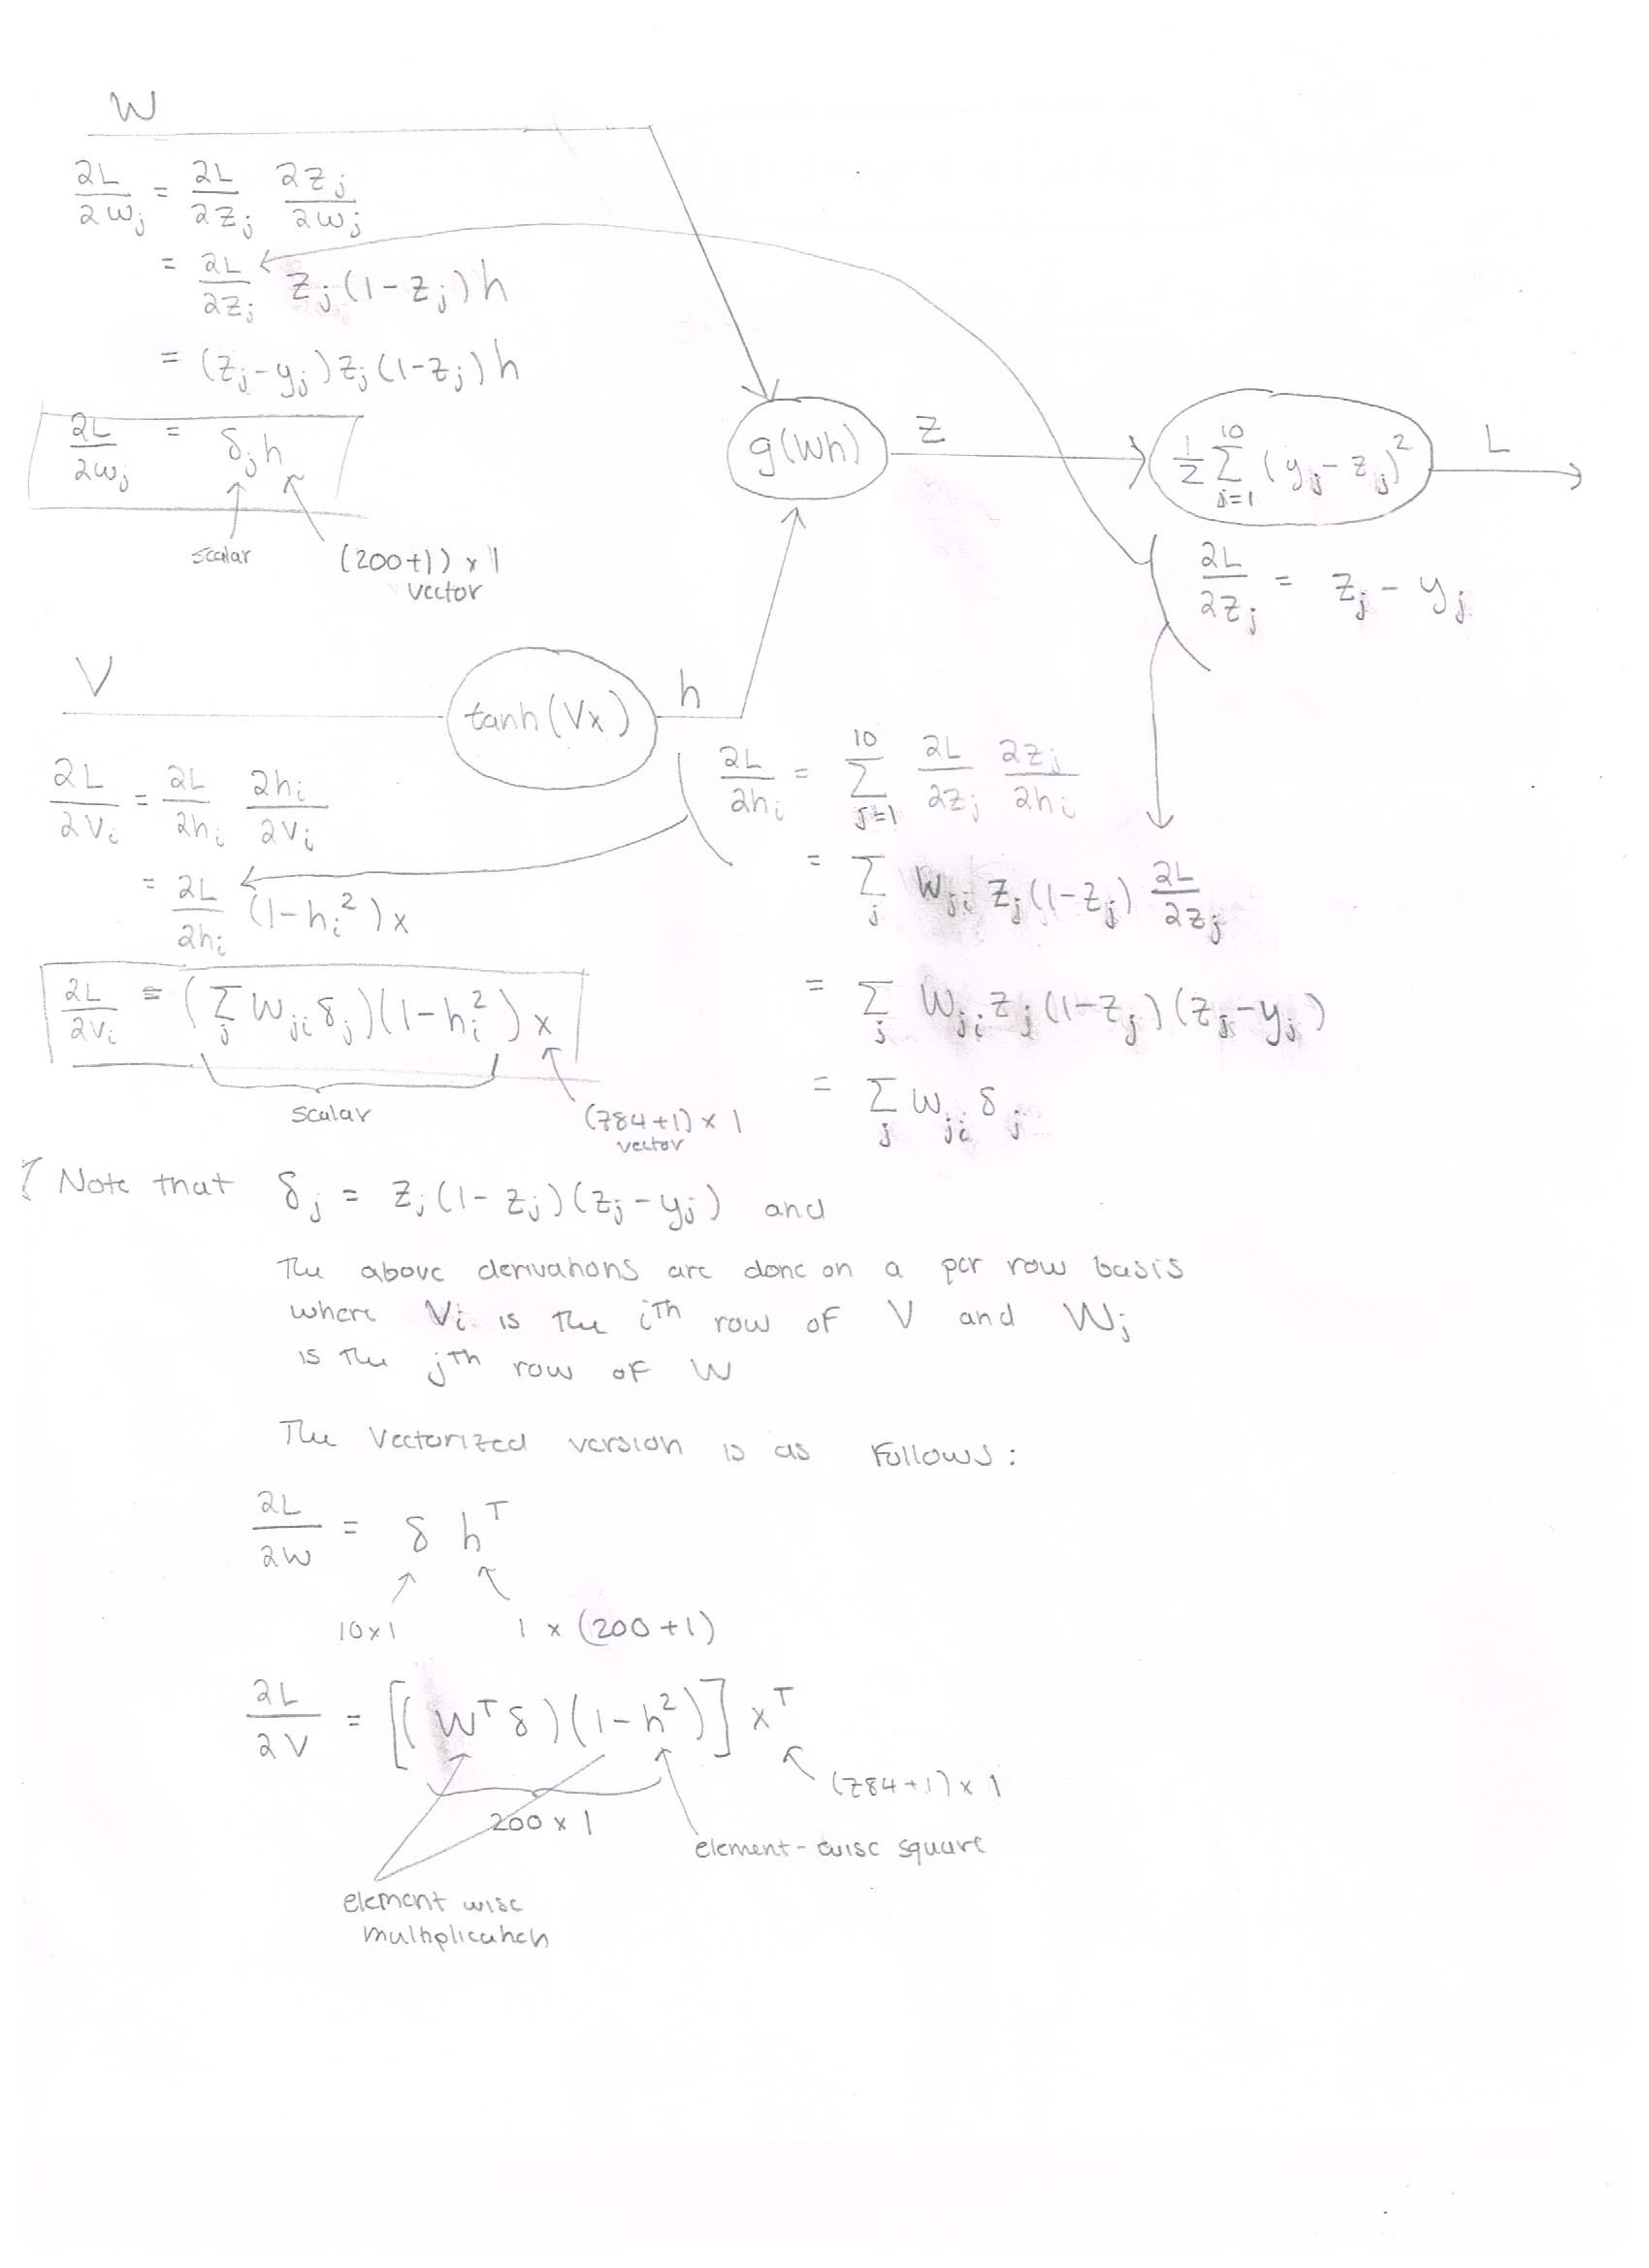 W
∂L/∂W_j = ∂L/∂z_j ∂z_j/∂W_j
= ∂L/∂z_j z_j(1-z_j)h
= (z_j-y_j)z_j(1-z_j)h
∂L/∂W_j = δ_j h
scalar
(200+1) x 1
vector
g(Wh)
z
1/2 Σ_{j=1}^{10} (y_j - z_j)^2
L
∂L/∂z_j = z_j - y_j
V
tanh(Vx)
h
∂L/∂V_i = ∂L/∂h_i ∂h_i/∂V_i
= ∂L/∂h_i (1-h_i^2)x
∂L/∂V_i = (Σ_j W_ji δ_j)(1-h_i^2)x
scalar
(784+1) x 1
vector
∂L/∂h_i = Σ_{j=1}^{10} ∂L/∂z_j ∂z_j/∂h_i
= Σ_j W_ji z_j(1-z_j) ∂L/∂z_j
= Σ_j W_ji z_j(1-z_j)(z_j-y_j)
= Σ_j W_ji δ_j
Note that δ_j = z_j(1-z_j)(z_j-y_j) and
The above derivations are done on a per row basis
where V_i is the ith row of V and W_j
is the jth row of W
The Vectorized version is as follows:
∂L/∂W = δ h^T
10x1
1 x (200+1)
∂L/∂V = [(W^T δ)(1-h^2)] x^T
(784+1) x 1
200 x 1
element-wise square
element wise
multiplication